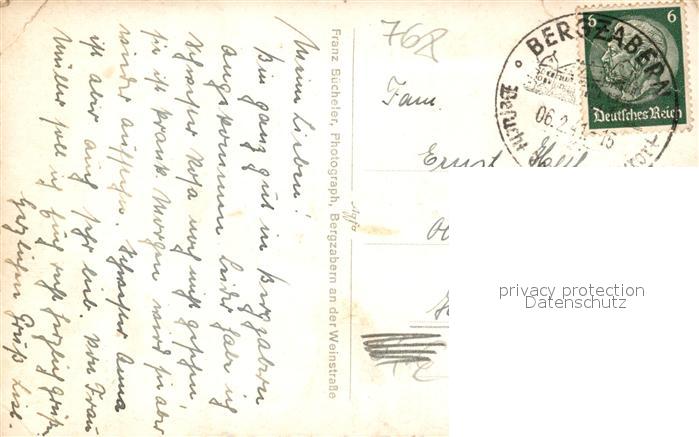 Meine Lieben!
Bin ganz gut in Bergzabern
angekommen. Leider habe ich
Schwester Rosa noch nicht gesehen
sie ist krank. Morgen wird sie aber
wieder aufstehen. Schwester Anna
ist aber auch sehr lieb. Von Frau
Müller soll ich Euch recht herzlich grüßen
Herzlichen Gruß Liesl.
Franz Bücheler, Photograph, Bergzabern an der Weinstraße
Agfa
768
Fam.
Ernst
BERGZABERN
06.2.41-15
Besucht
6 6
Deutsches Reich
privacy protection
Datenschutz